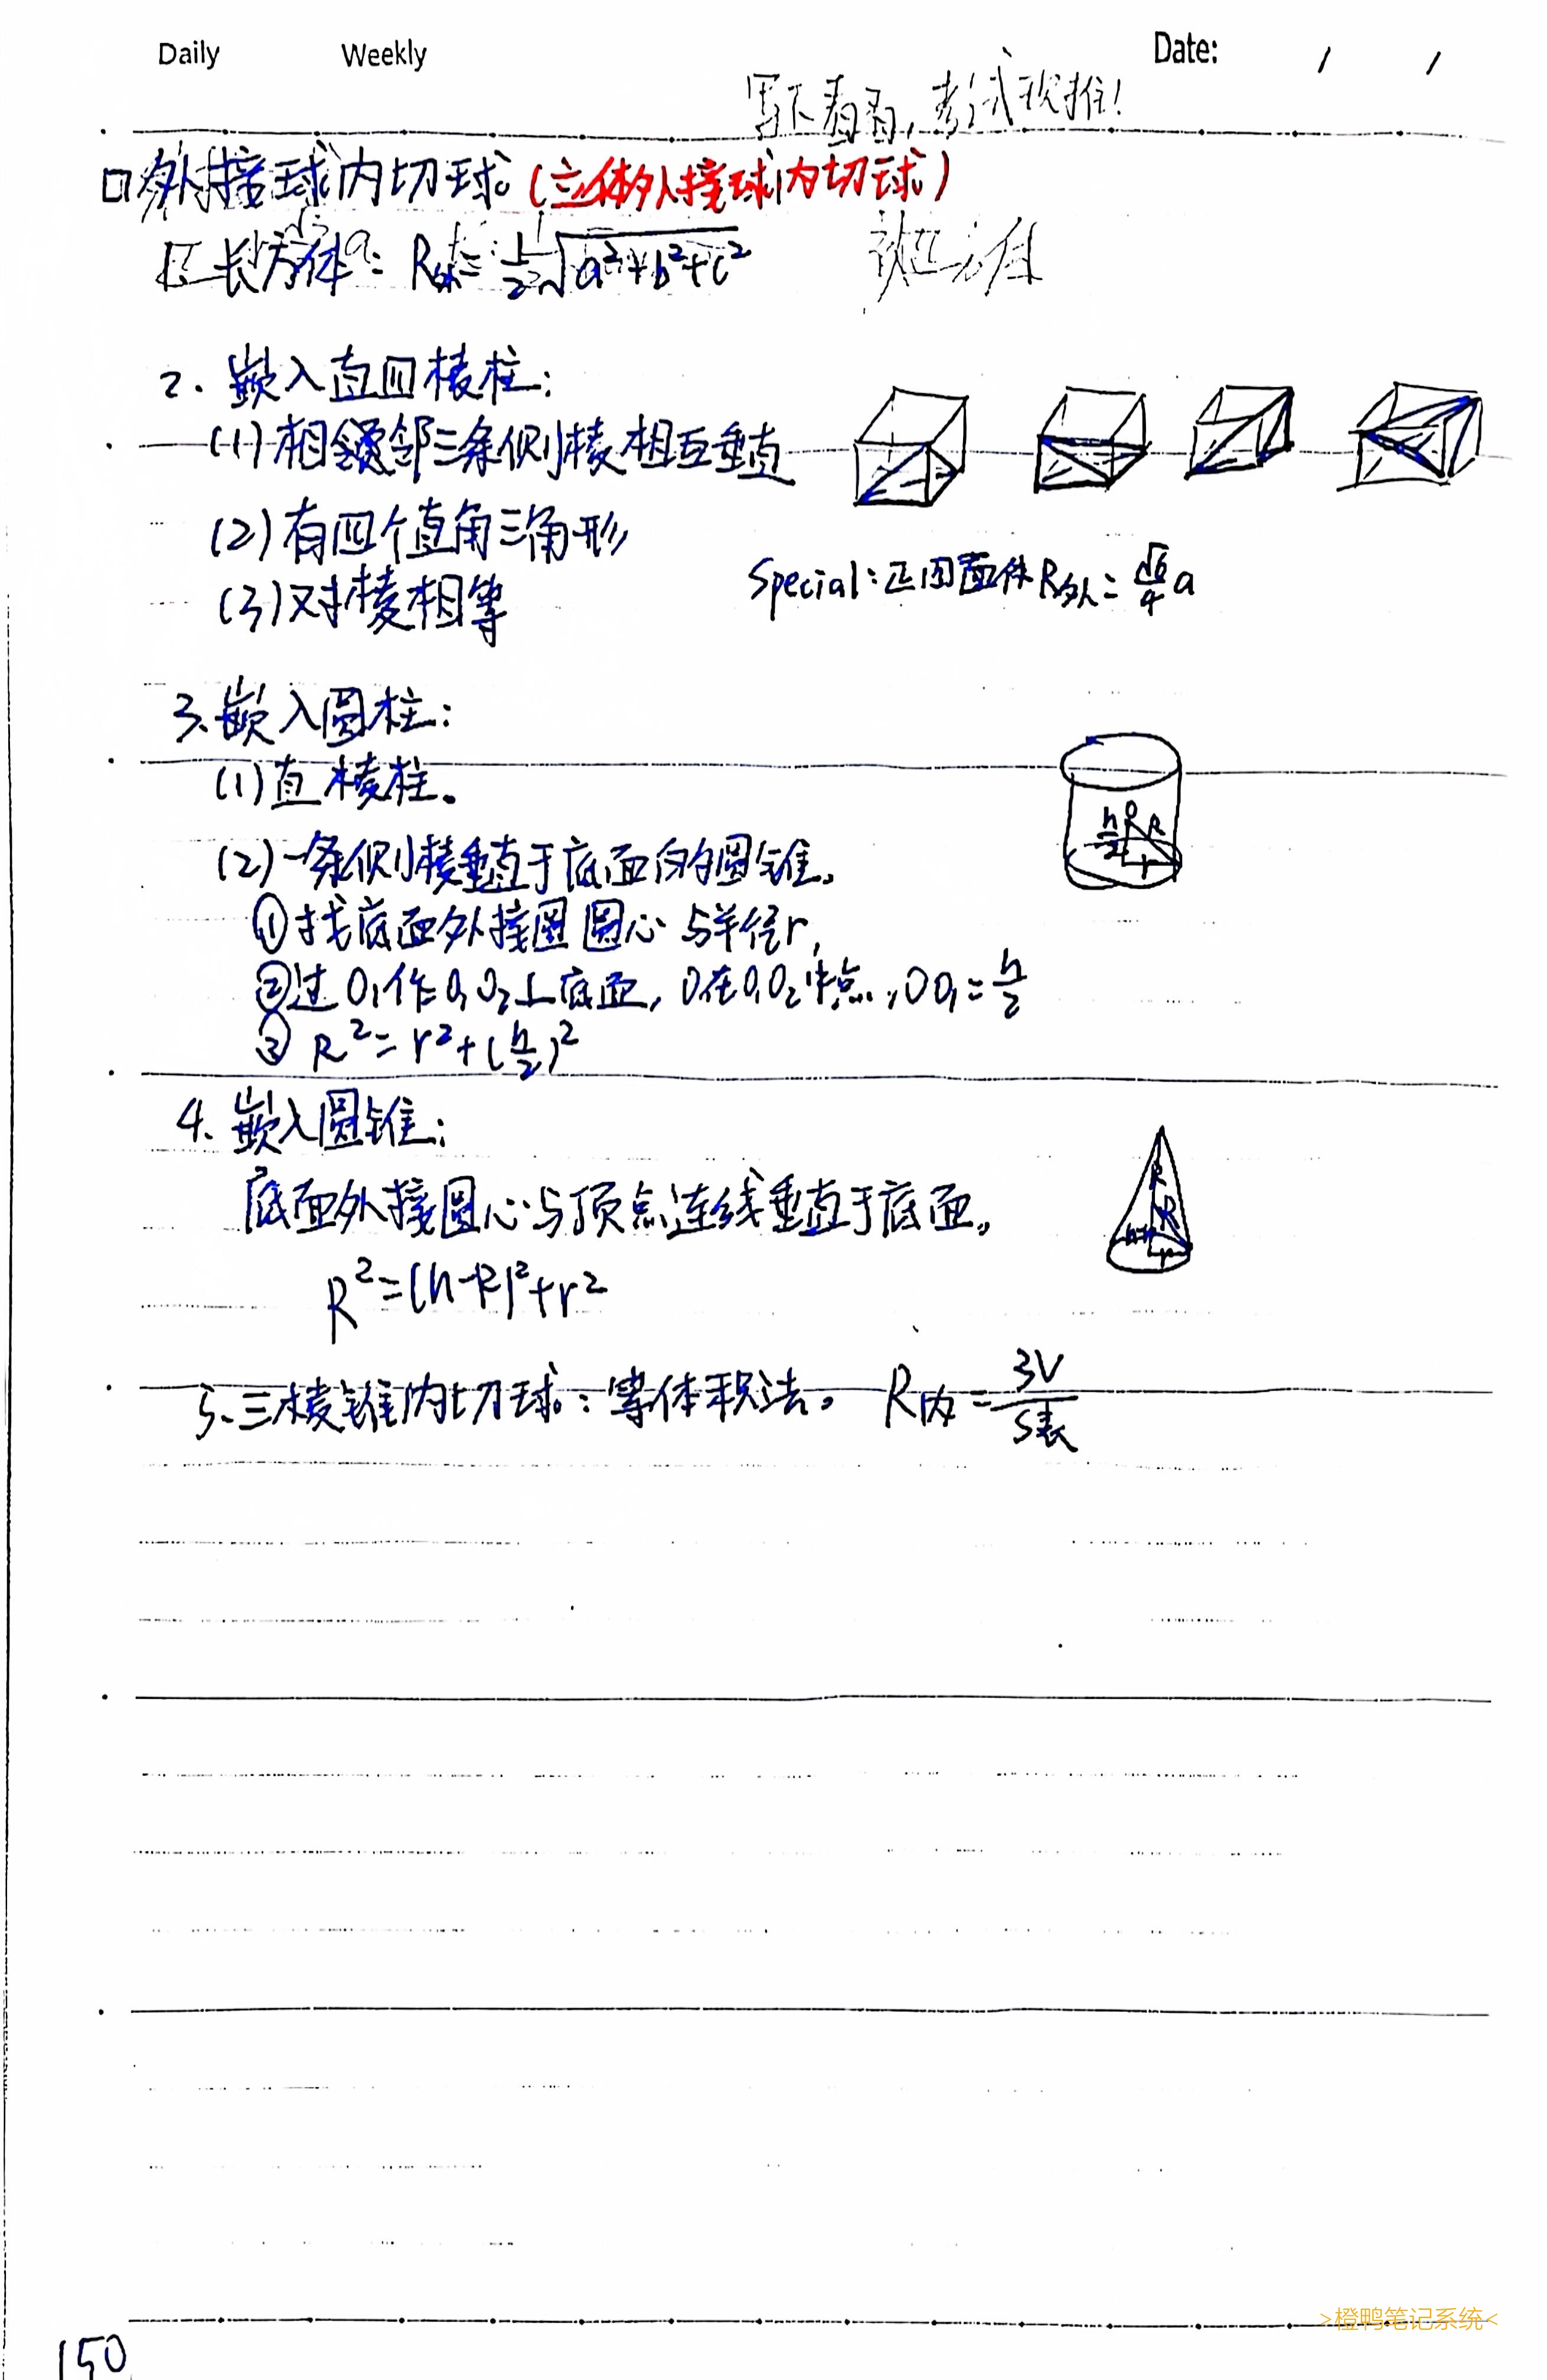 Daily Weekly Date: / /
写下看看,考试现推!
口外接球内切球(立体外接球内切球)
1. 长方体: R外=1/2√(a²+b²+c²)
2. 嵌入直四棱柱:
(1)相邻三条侧棱相互垂直
(2)有四个直角三角形
(3)对棱相等
Special:正四面体R外=√6/4 a
3.嵌入圆柱:
(1)直棱柱。
(2)一条侧棱垂直于底面的圆锥。
h/2 O R r
①找底面外接圆圆心与半径r,
②过O₁作O₁O₂⊥底面,O在O₁O₂中点,OO₁=h/2
③ R²=r²+(h/2)²
4. 嵌入圆锥:
底面外接圆心与顶点连线垂直于底面。
R R h-R r
R²=(h-R)²+r²
5.三棱锥内切球:等体积法。 R内=3V/S表
>橙鸭笔记系统<
150